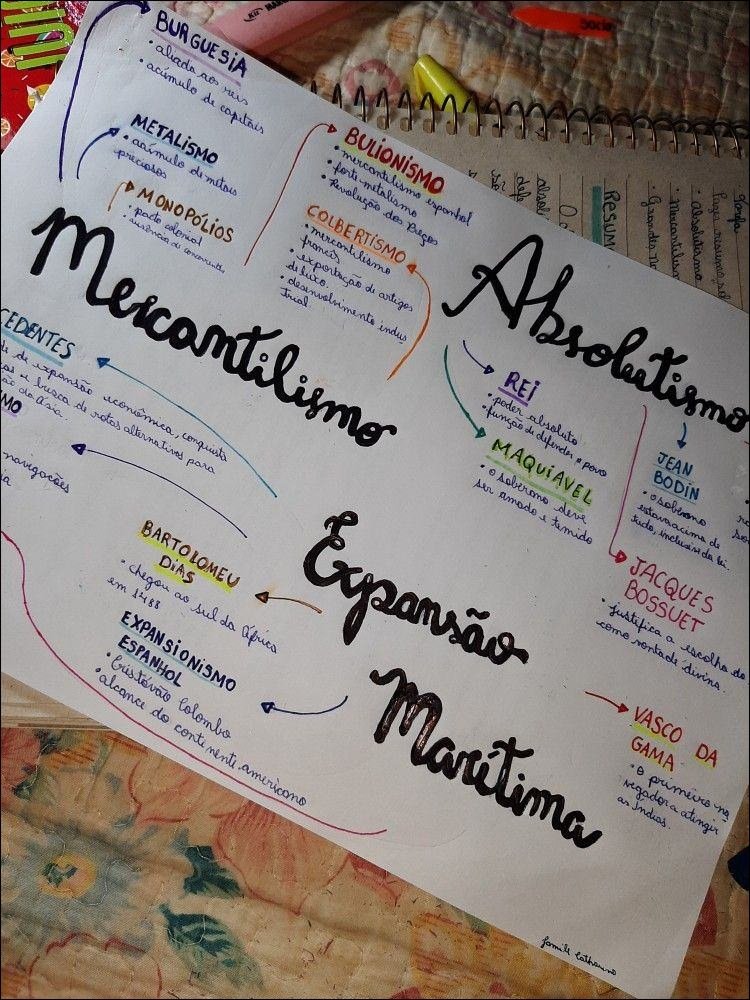 BURGUESIA
• aliada aos reis
• acúmulo de capitais
METALISMO
• acúmulo de metais
preciosos
MONOPÓLIOS
• pacto colonial
• ausência de concorrente
BULIONISMO
• mercantilismo espanhol
• forte metalismo
• Revolução dos Preços
COLBERTISMO
• mercantilismo
francês
• exportação de artigos
de luxo.
• desenvolvimento indus
trial
Mercantilismo
Absolutismo
REI
• poder absoluto
• função de defender o povo
MAQUIAVEL
• o soberano deve
ser amado e temido
JEAN
BODIN
• o soberano
estava acima de
tudo, inclusive da lei.
JACQUES
BOSSUET
• justifica a escolha do
como vontade divina.
CEDENTES
de expansão econômica, conquista
e busca de rotas alternativas para
da Ásia.
MO
navegações
BARTOLOMEU
DIAS
• chegou ao sul da África
em 1488
EXPANSIONISMO
ESPANHOL
• Cristóvão Colombo
• alcance do continente americano
Expansão
Marítima
VASCO DA
GAMA
• o primeiro na
vegador a atingir
as Índias.
RESUM
• Absolutismo
• Mercantilis